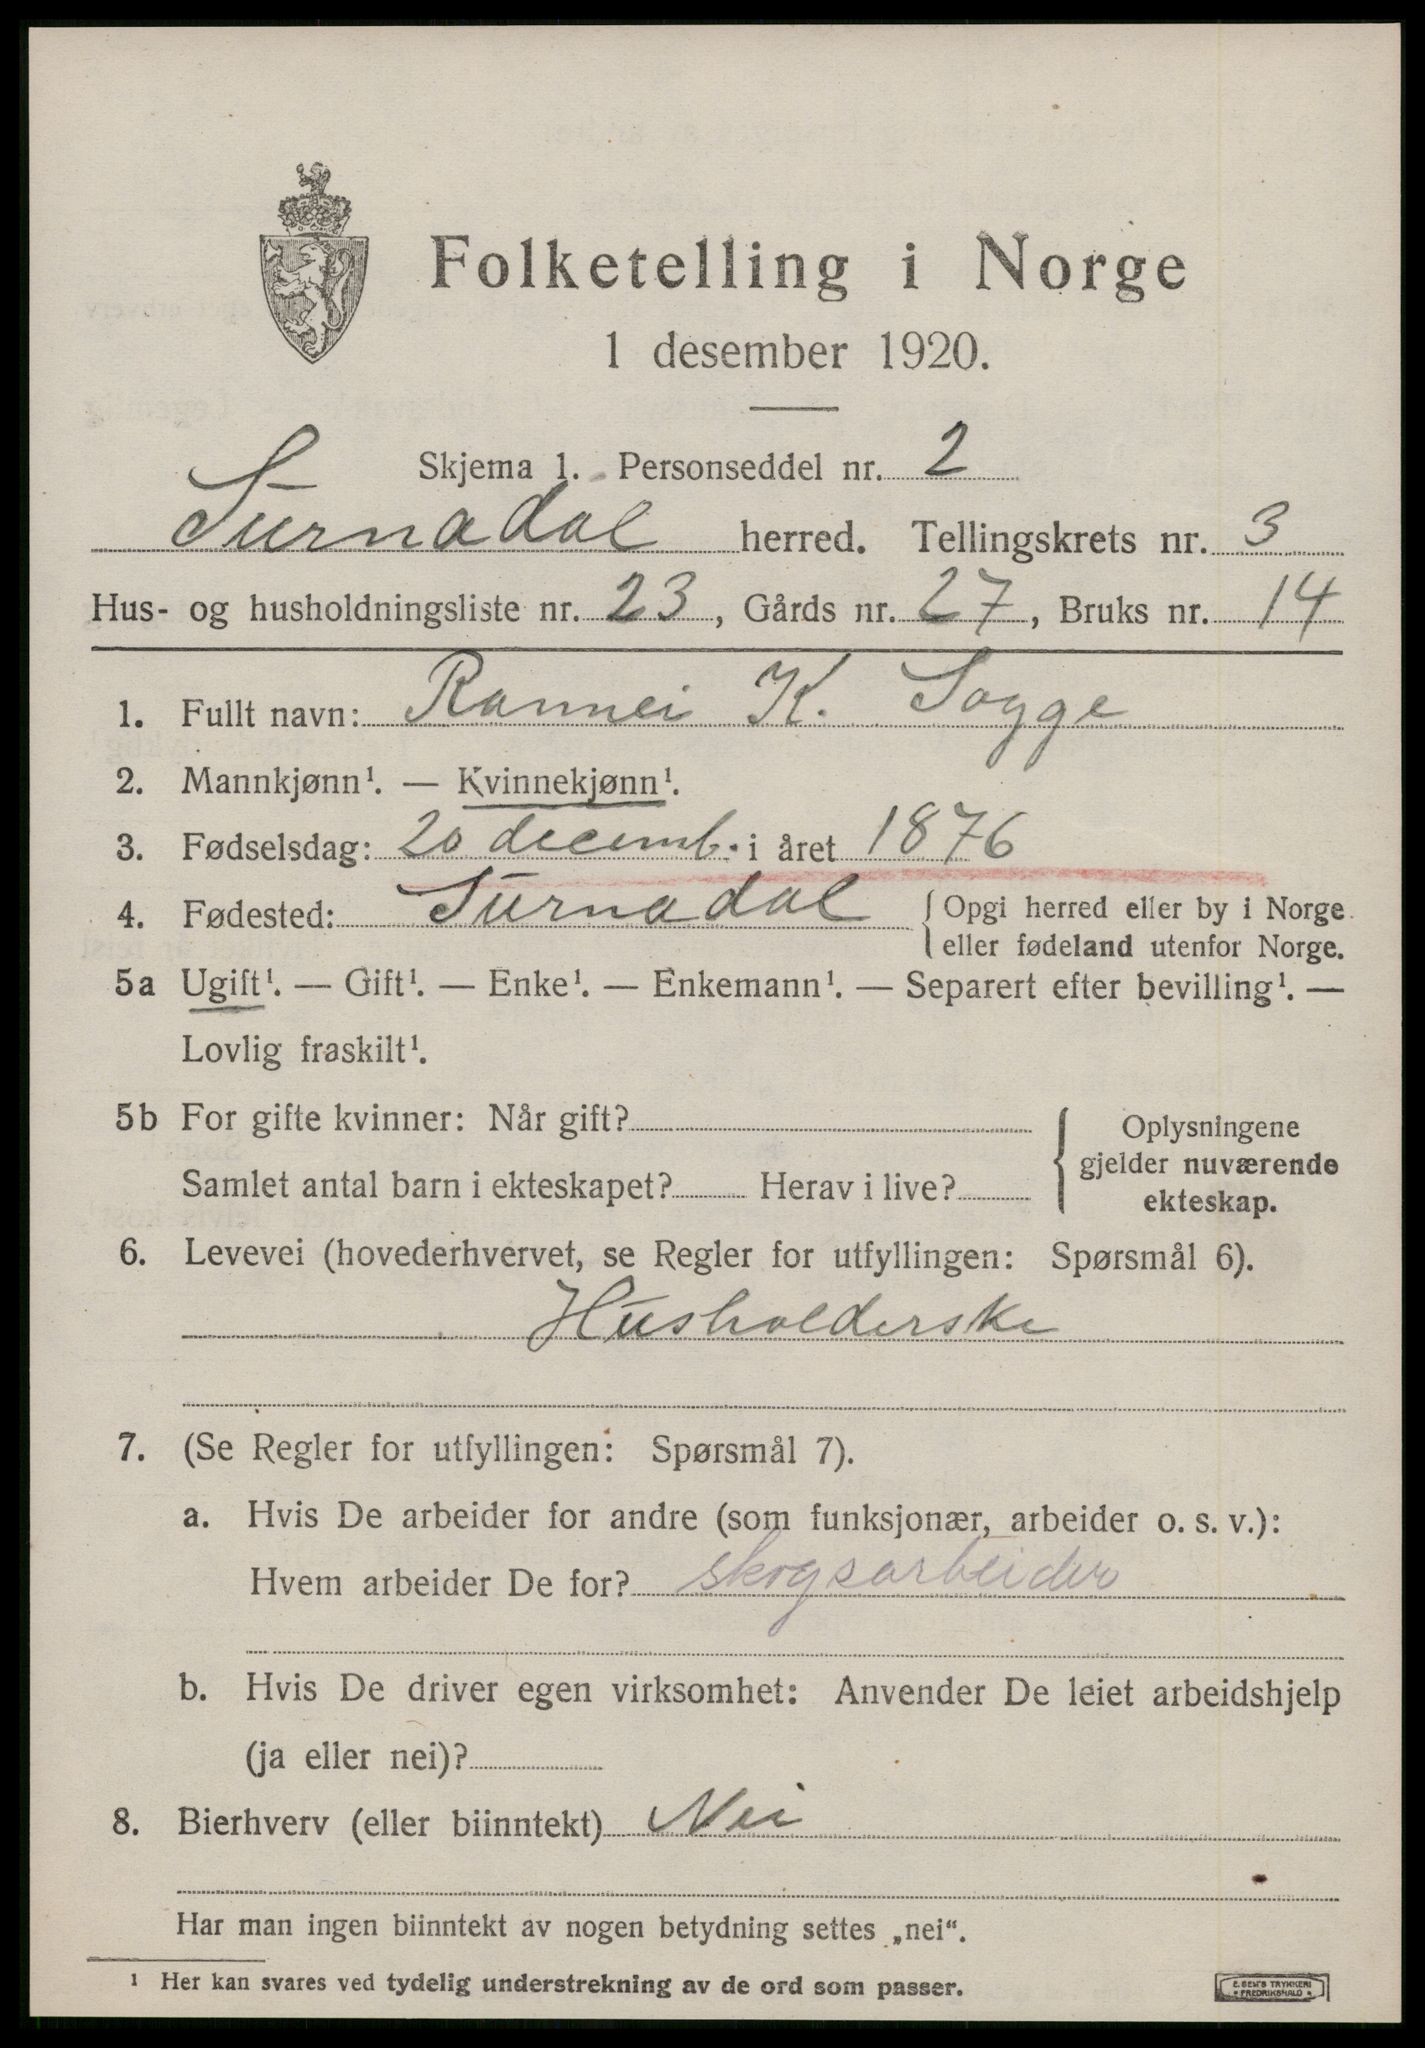 Folketelling i Norge
1 desember 1920.
Skjema 1. Personseddel nr. 2
Surnadal herred. Tellingskrets nr. 3
Hus- og husholdningsliste nr. 23, Gårds nr. 27, Bruks nr. 14
1. Fullt navn: Rannei K. Sogge
2. Mannkjønn¹. — Kvinnekjønn¹.
3. Fødselsdag: 20 decemb. i året 1876
4. Fødested: Surnadal { Opgi herred eller by i Norge
eller fødeland utenfor Norge.
5a Ugift¹. — Gift¹. — Enke¹. — Enkemann¹. — Separert efter bevilling¹. —
Lovlig fraskilt¹.
5b For gifte kvinner: Når gift?
Samlet antal barn i ekteskapet? Herav i live?
{ Oplysningene
gjelder nuværende
ekteskap.
6. Levevei (hovederhvervet, se Regler for utfyllingen: Spørsmål 6).
Husholderske
7. (Se Regler for utfyllingen: Spørsmål 7).
a. Hvis De arbeider for andre (som funksjonær, arbeider o. s. v.):
Hvem arbeider De for? skogsarbeider
b. Hvis De driver egen virksomhet: Anvender De leiet arbeidshjelp
(ja eller nei)?
8. Bierhverv (eller biinntekt) Nei
Har man ingen biinntekt av nogen betydning settes „nei“.
¹ Her kan svares ved tydelig understrekning av de ord som passer.
E. SEM'S TRYKKERI
• FREDRIKSHALD •